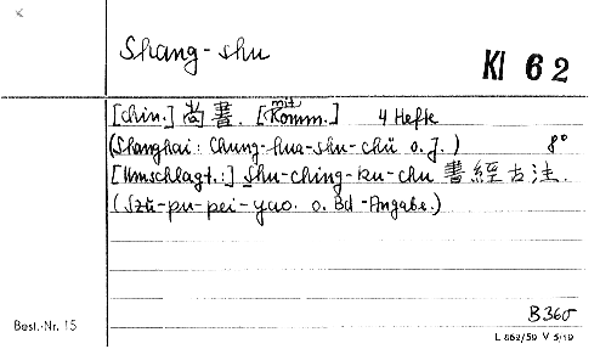 Shang-shu
Kl 62
[chin.] 尚書. [mit Komm.] 4 Hefte
(Shanghai: Chung-hua-shu-chü o. J.) 8°
[Umschlagt.:] Shu-ching-ku-chu 書經古注.
(Szŭ-pu-pei-yao. o. Bd-Angabe.)
B360
Best.-Nr. 15
L 862/59 V 5/19